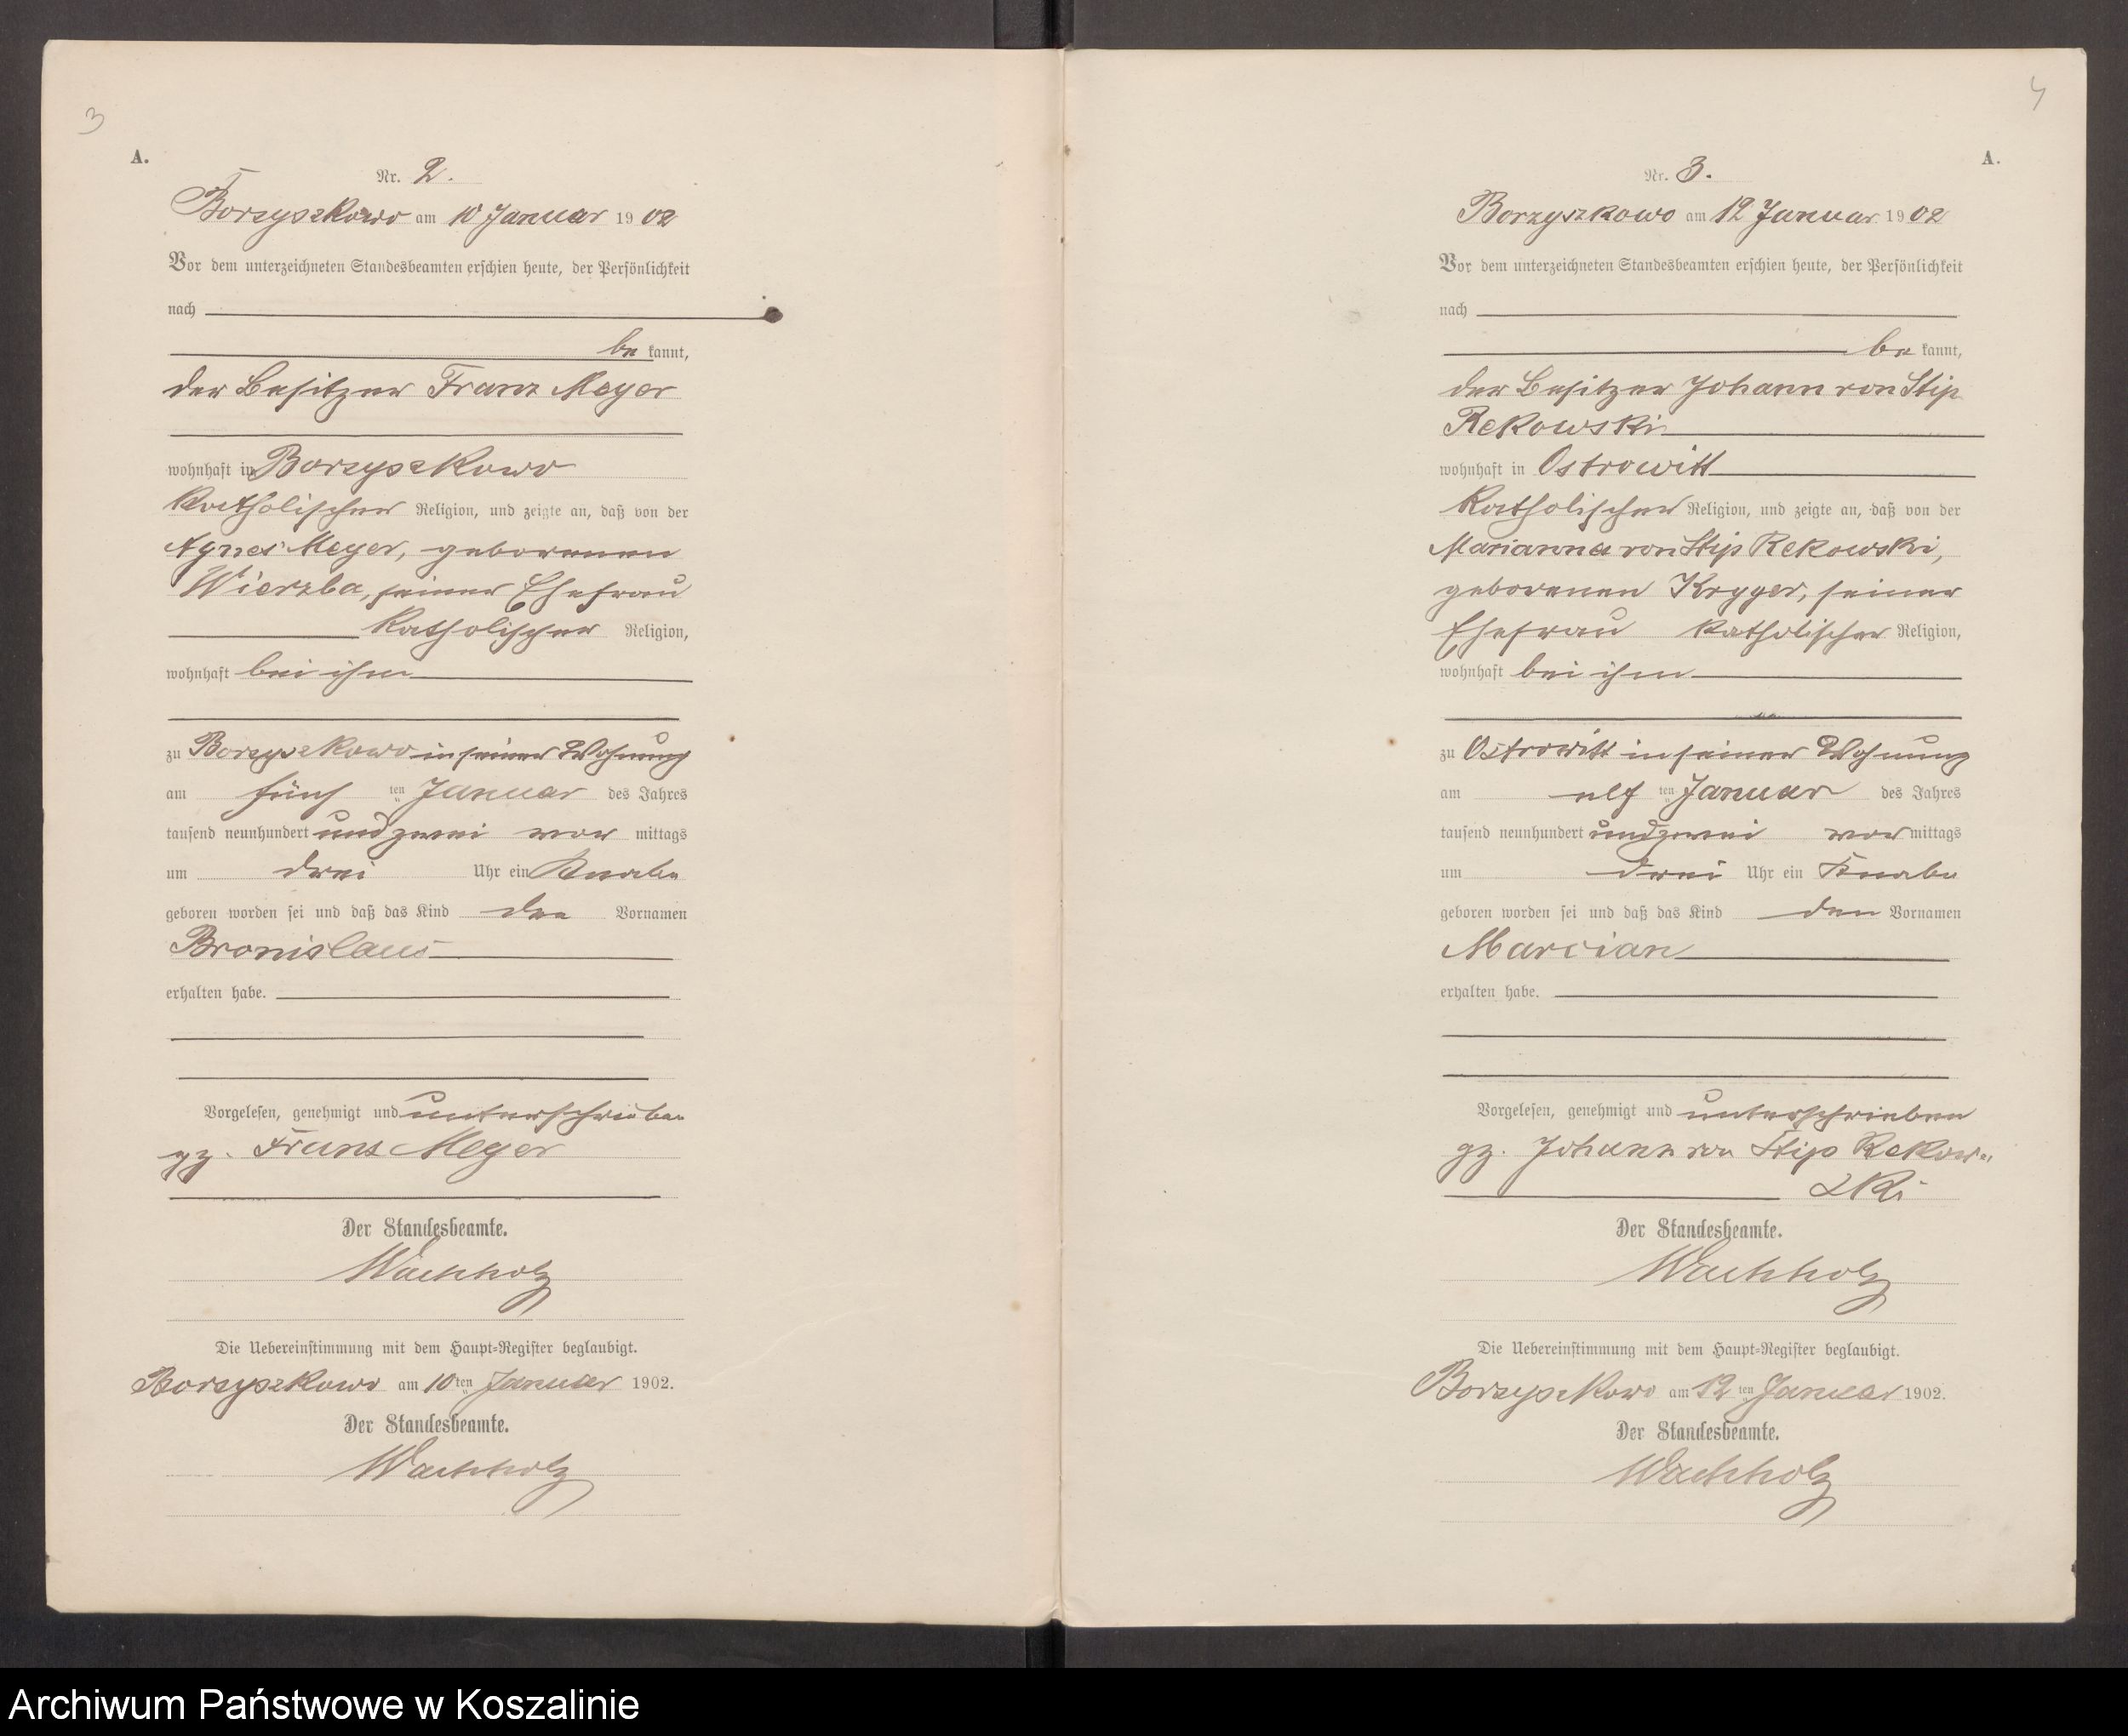 3
A.
Nr. 2.
Borzyszkowo am 10 Januar 1902
Vor dem unterzeichneten Standesbeamten erschien heute, der Persönlichkeit
nach
be kannt,
der Besitzer Franz Meyer
wohnhaft in Borzyszkowo
katholischer Religion, und zeigte an, daß von der
Agnes Meyer, geborenen
Wierzba, seiner Ehefrau
katholischer Religion,
wohnhaft bei ihm
zu Borzyszkowo in seiner Wohnung
am fünf ten Januar des Jahres
tausend neunhundert und zwei vor mittags
um drei Uhr ein Knabe
geboren worden sei und daß das Kind den Vornamen
Bronislaus
erhalten habe.
Vorgelesen, genehmigt und unterschrieben
gz. Franz Meyer
Der Standesbeamte.
Wachholz
Die Uebereinstimmung mit dem Haupt-Register beglaubigt.
Borzyszkowo am 10 ten Januar 1902.
Der Standesbeamte.
Wachholz
4
A.
Nr. 3.
Borzyszkowo am 12 Januar 1902
Vor dem unterzeichneten Standesbeamten erschien heute, der Persönlichkeit
nach
be kannt,
der Besitzer Johann von Stip
Rekowski
wohnhaft in Ostrowitt
katholischer Religion, und zeigte an, daß von der
Marianna von Stip Rekowski,
geborenen Kryger, seiner
Ehefrau katholischer Religion,
wohnhaft bei ihm
zu Ostrowitt in seiner Wohnung
am elf ten Januar des Jahres
tausend neunhundert und zwei vor mittags
um drei Uhr ein Knabe
geboren worden sei und daß das Kind den Vornamen
Marcian
erhalten habe.
Vorgelesen, genehmigt und unterschrieben
gz. Johann von Stip Rekow-
ski
Der Standesbeamte.
Wachholz
Die Uebereinstimmung mit dem Haupt-Register beglaubigt.
Borzyszkowo am 12 ten Januar 1902.
Der Standesbeamte.
Wachholz
Archiwum Państwowe w Koszalinie